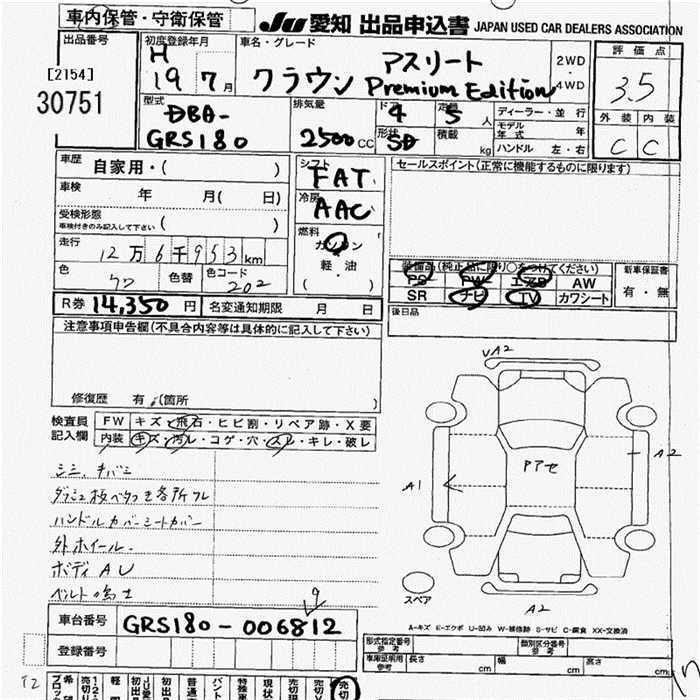 車内保管・守衛保管
JU 愛知 出品申込書 JAPAN USED CAR DEALERS ASSOCIATION
出品番号
[2154]
30751
初度登録年月
H
19年 7月
車名・グレード
クラウン アスリート
Premium Edition
2WD
・
4WD
評価点
3.5
外装 内装
C C
型式
DBA-
GRS180
排気量
2500CC
ドア
4
形状
SD
定員
5人
積載
kg
ディーラー・並行
モデル年式 年
ハンドル 左・右
車歴 自家用・( )
車検 年 月( 日)
受検形態
車検付きのみ記入して下さい ( )
走行
12万6千953km
色 色替 色コード
202
シフト
FAT
冷房
AAC
燃料
ガソリン
・
軽・油
( )
セールスポイント(正常に機能するものに限ります)
装備品(純正品に限り○をつけてください)
PS PW エアB AW
SR ナビ TV カワシート
新車保証書
有・無
R券 14,350円 名変通知期限 月 日
後日品
注意事項申告欄(不具合内容等は具体的に記入して下さい)
修復歴 有(箇所 )
検査員
記入欄
FW キズ・飛石・ヒビ割・リペア跡・X要
内装 キズ・汚レ・コゲ・穴・スレ・キレ・破レ
ハンドルカバーシートカバー
外ホイール
ボディ AU
9
車台番号 GRS180-006812
登録番号
VA2
A2
A1
A2
スペア
A-キズ E-エクボ U-凹み W-補修跡 S-サビ C-腐食 XX-交換済
形式指定番号
参考
類別区分番号
参考
車庫証明用
参考
長さ cm 幅 cm 高さ cm